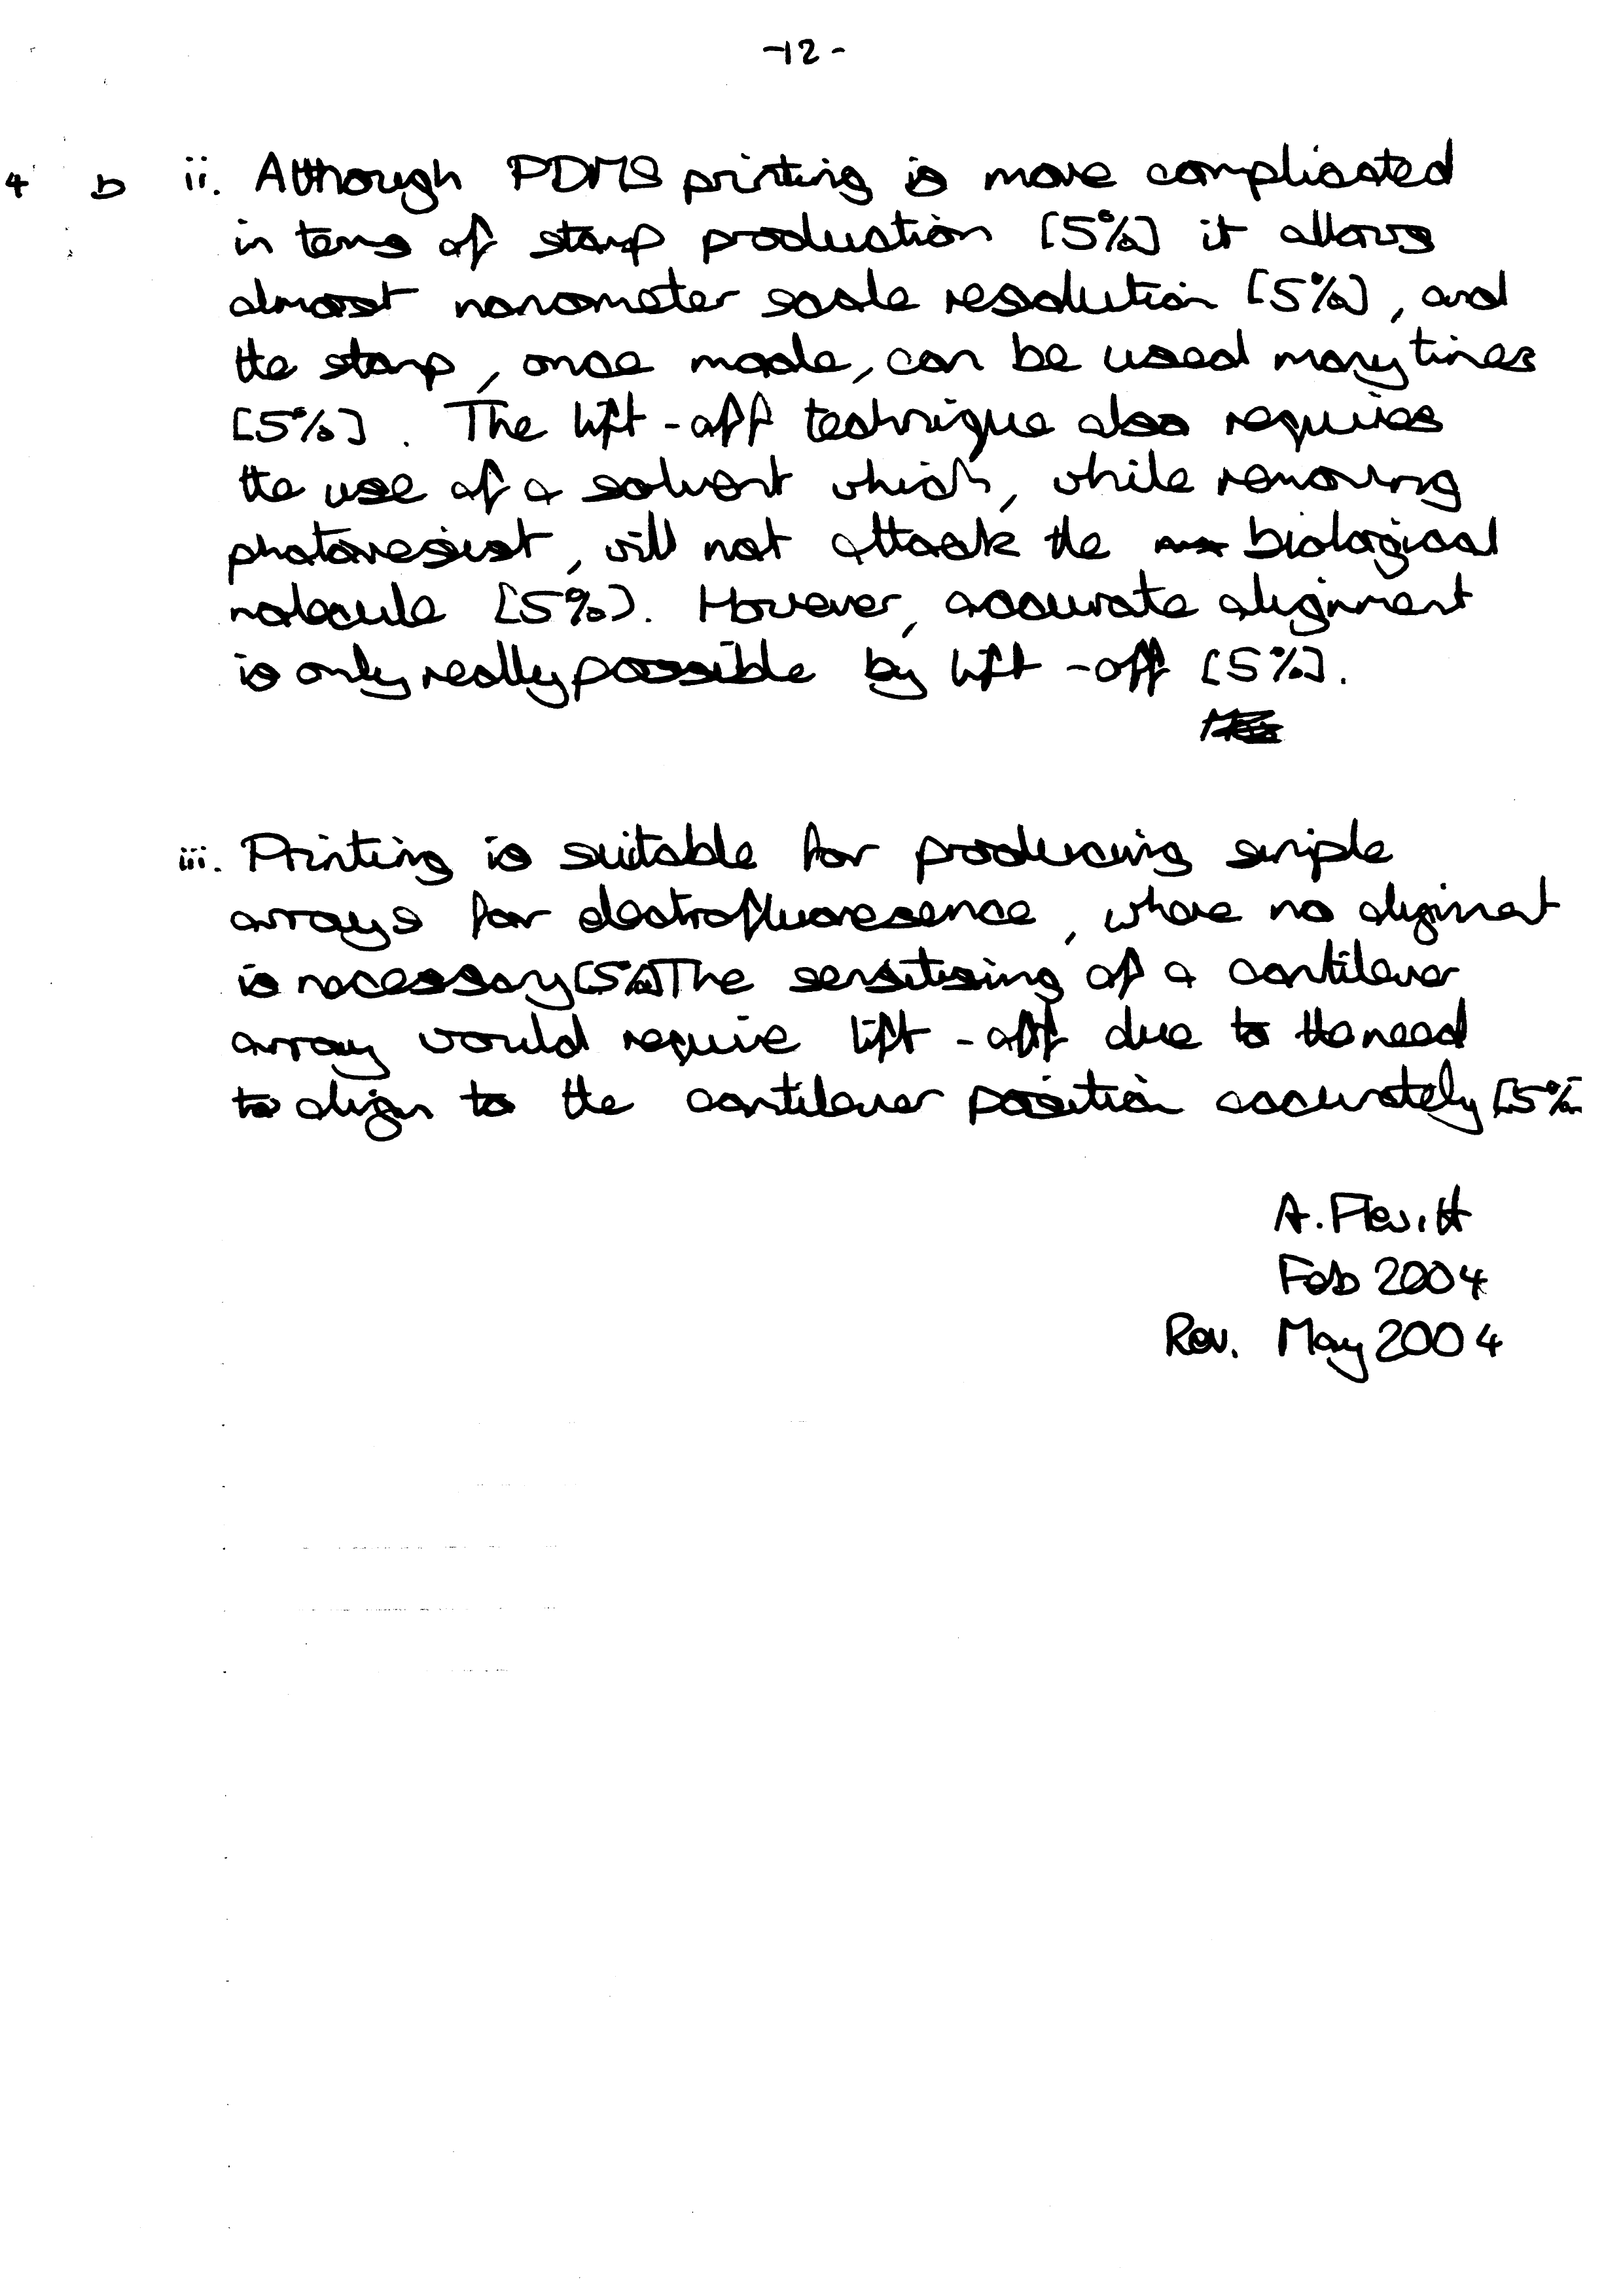 -12-
4 b ii. Although PDMS printing is more complicated
in terms of stamp production [5%] it allows
almost nanometer scale resolution [5%], and
the stamp, once made, can be used many times
[5%]. The lift-off technique also requires
the use of a solvent which, while removing
photoresist, will not attack the biological
molecule [5%]. However, accurate alignment
is only really possible by lift-off [5%].
iii. Printing is suitable for producing simple
arrays for electrofluoresence, where no alignment
is necessary [5%] The sensitising of a cantilever
array would require lift-off due to the need
to align to the cantilever position accurately [5%
A. Flewitt
Feb 2004
Rev. May 2004